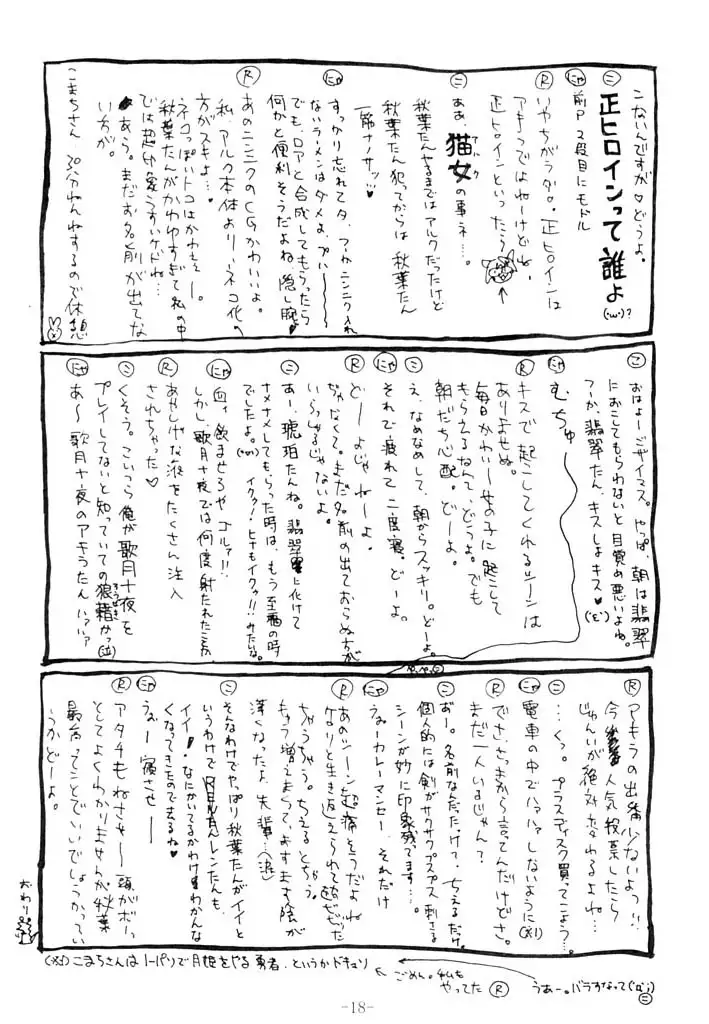 こないんですが♡どうよ。
㋙正ヒロインって誰よ(・ω・)?
㋥前P2段目にもドル
Ⓡいやちがうダロ。正ヒロインは
アキラではねーけどね。
正ヒロインといったら
㋙ああ、猫女の事ネ…。
アルク
秋葉たんヤるまではアルクだったけど
秋葉たん犯ってからは秋葉たん
一筋ナッサッ…♡
すっかり忘れてタ、
ないラーメンはダメよ。
でも、ロアと合成してもらったら
何かと便利そうだよね隠し腕♥
ⓇあのニンニクのCGかわいいよ。
私、アルク本体より、ネコ化の
方がスキよ…♡
ネコっぽいトコはかわえー。
秋葉たんがかわゆすぎて私の中
では超印象うすいケドね…
あう。まだお名前が出てな
い方が。
こまちさん、30分ねんねするので休憩
㋙おはよーゴザイマス。やっぱ、朝は翡翠
におこしてもらわないと目覚め悪いよね。
つーか、翡翠たん、キスしよキス♥(・ε・)
むちゅ
Ⓡキスで起こしてくれるシーンは
ありませぬ。
毎日かわいー女の子に起こして
もらえるなんて、どうよ。でも
朝だち心配。どーよ。
え、なめなめして、朝からスッキリ。どーよ。
それで疲れて二度寝。どーよ。
Ⓡどーよじゃねーよ。
ぢゃなくて。まだ名前の出ておらぬ方が
いらっしゃるじゃないよ。
あー、琥珀たんね。翡翠に化けて
ナメナメしてもらった時は、もう至福の時
でしたよ。イクゥ!ヒナもイクゥ!!みたいな。
血ィ飲ませろやゴルァ!!
しかし、歌月十夜では何度射たれたことか
Ⓡあやしげな液をたくさん注入
されちゃった♡
くそう。こいつら俺が歌月十夜を
プレイしてないと知っていての狼藉かっ(泣)
ろうぜき
あ〜歌月十夜のアキラたんハァハァ
Ⓡアキラの出番少ないよっ!!
今人気投票したら
じゅんいが絶対変わるよね…
…くっ。プラスディスク買ってこよう…。
電車の中でハァハァしないように(※1)
Ⓡでさ、さっきから言ってんだけどさ。
まだ一人いるじゃん?
おー。名前なんだたっけ?、ちえるだっけ。
個人的には剣がサクサクプスプス刺さる
シーンが妙に印象残ってます…。
うぉーカレーマンセー。それだけ
Ⓡあのシーン超痛そうだよね
ちゃうちゃう。ちえるとちゃう。
キャラ増えてまって、ますます陰が
深くなったよ、先輩…(泣)
そんなわけでやっぱり秋葉たんがイイと
いうわけでレンたんも、
イイ!なにかいてるかわけわかんな
くなってきたので去るね♥
うぉー寝させー
Ⓡアタチもねさせー頭がボーッ
としてよくわかりませんが秋葉
最高ってことでいいでしょうかってい
うかどーよ。
おわり
(※1)こまちさんはノーパソで月姫をやる勇者。というかドキュソ
ごめん。私も
やってたⓇ
うあー。バラすなって
-18-